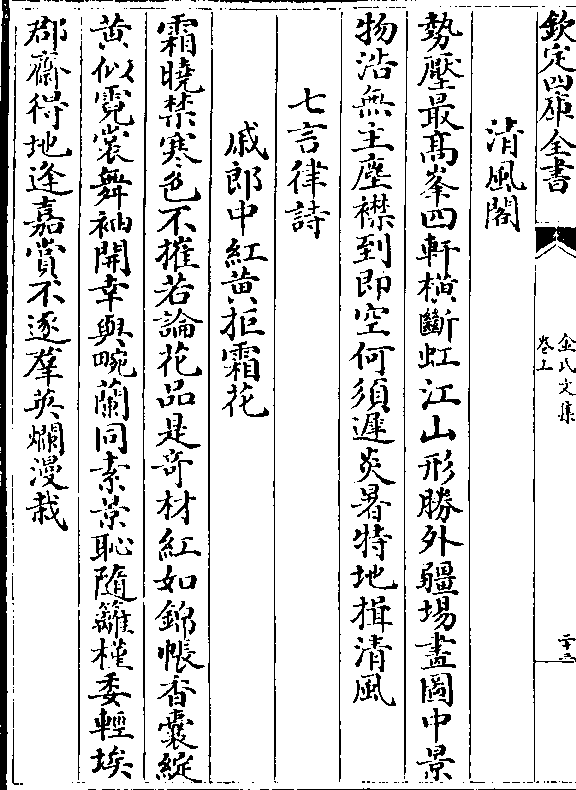 欽定四庫全書
金氏文集
卷上
二十三
清風閣
勢壓最高峯四軒橫斷虹江山形勝外疆埸畫圖中景
物浩無主塵襟到即空何須遲炎暑特地揖清風
七言律詩
戚郎中紅黄拒霜花
霜曉禁寒色不摧若論花品是竒材紅如錦帳香囊綻
黄似霓裳舞袖開幸與畹蘭同素景恥隨籬槿委輕埃
郡齋得地逢嘉賞不逐羣英爛漫栽